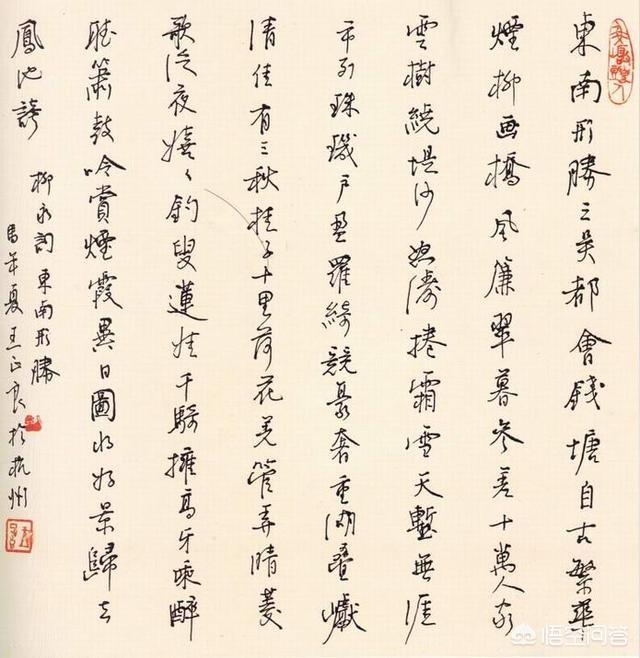 東南形勝三吳都會錢塘自古繁華
煙柳画橋風簾翠暮參差十萬人家
雲樹繞堤沙怒濤捲霜雪天塹無涯
市列珠璣戶盈羅綺競豪奢重湖疊巘
清佳有三秋桂子十里荷花羌管弄晴菱
歌泛夜嬉々釣叟蓮娃千騎擁高牙乘醉
聽簫鼓吟賞煙霞異日圖將好景歸去
鳳池誇
柳永詞東南形勝
馬年夏王正良於杭州
悟空问答